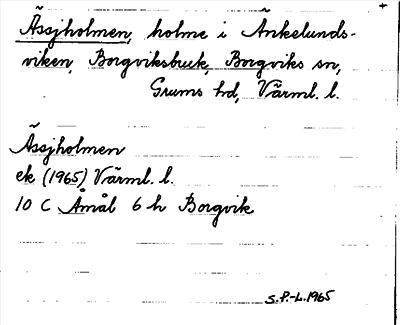 Ässjholmen, holme i Ankelunds-
viken, Borgviksbruk, Borgviks sn,
Grums hd, Värml. l.
Ässjholmen
ek (1965) Värml. l.
10 C Åmål 6 h Borgvik
S.P.-L. 1965